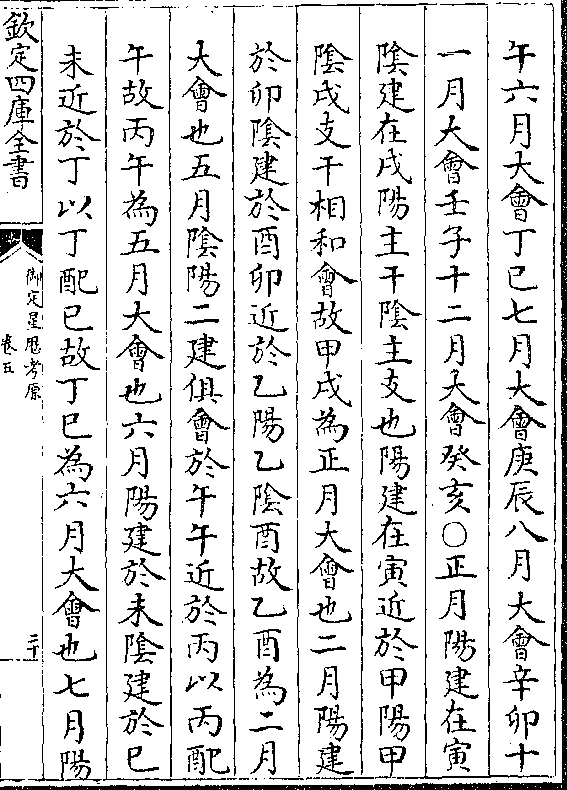 午六月大會丁巳七月大會庚辰八月大會辛卯十
一月大會壬子十二月大會癸亥○正月陽建在寅
陰建在戌陽主干陰主支也陽建在寅近於甲陽甲
陰戌支干相和會故甲戌為正月大會也二月陽建
於卯陰建於酉卯近於乙陽乙陰酉故乙酉為二月
大會也五月陰陽二建俱會於午午近於丙以丙配
午故丙午為五月大會也六月陽建於未陰建於巳
未近於丁以丁配巳故丁巳為六月大會也七月陽
欽定四庫全書
御定星厯考原
卷五
二十